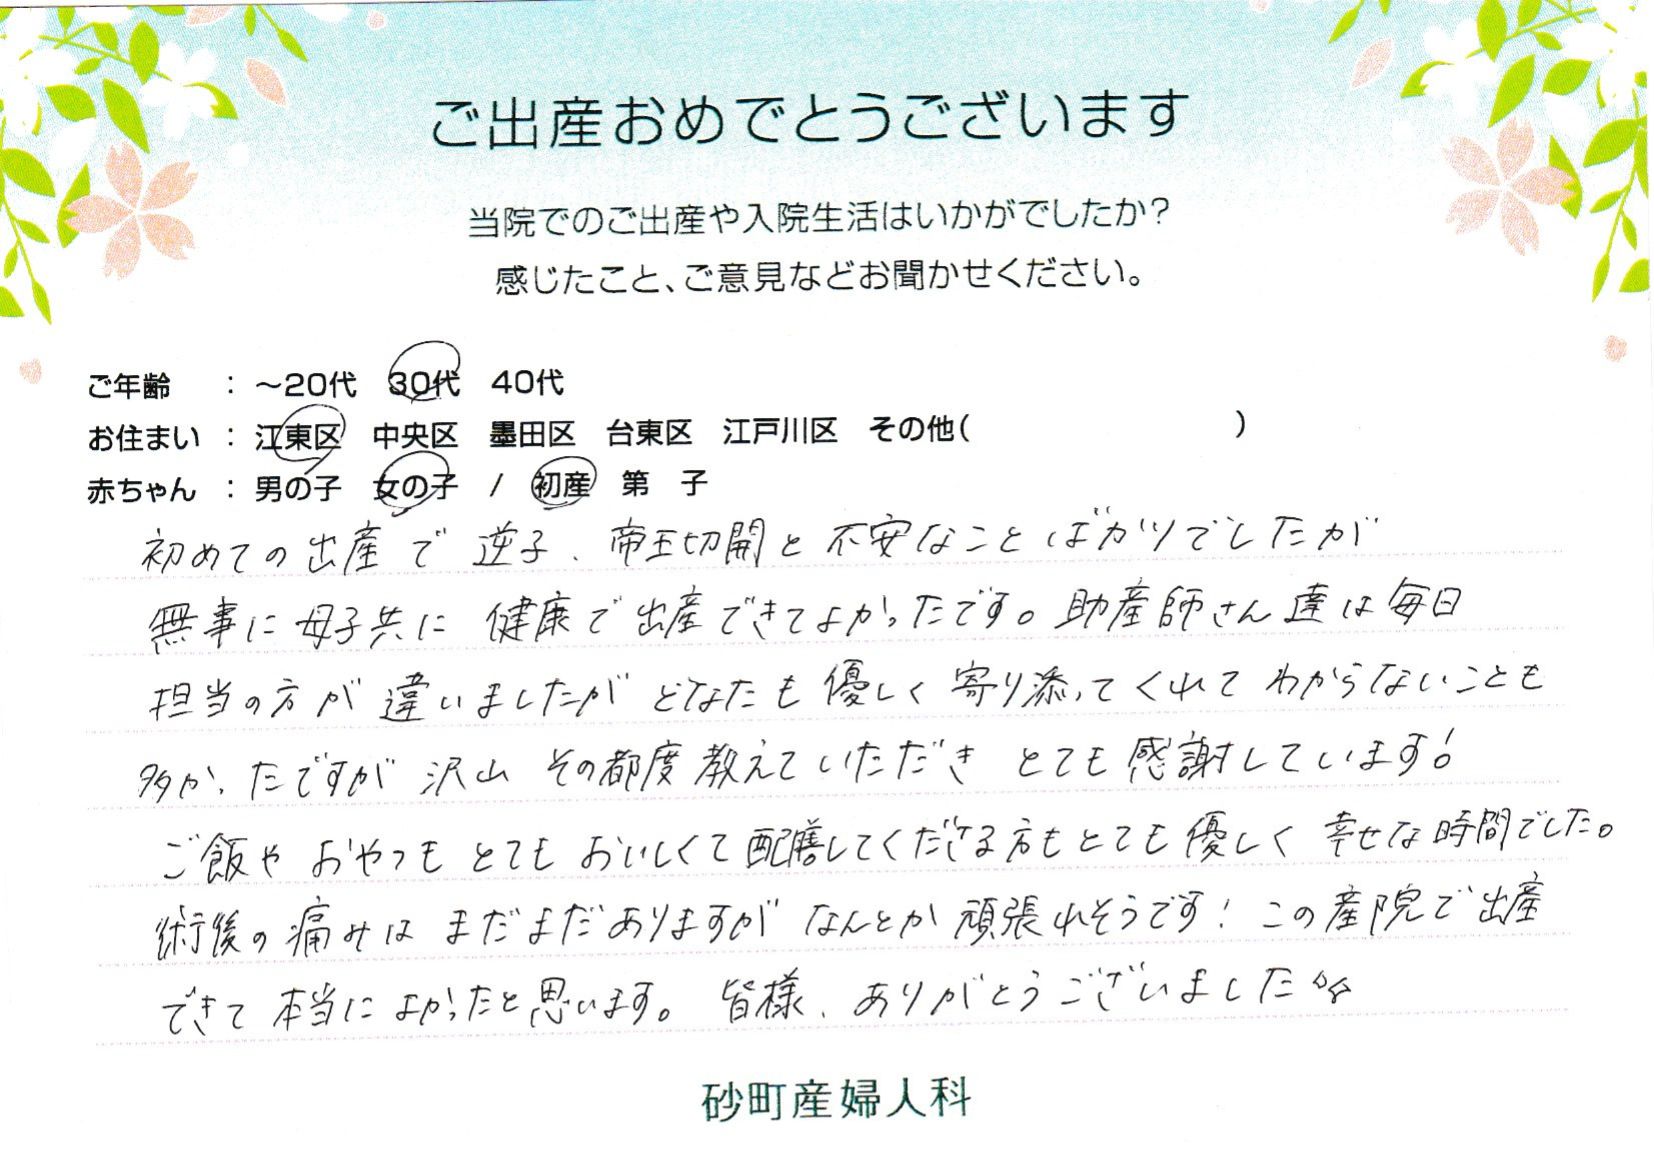 ご出産おめでとうございます
当院でのご出産や入院生活はいかがでしたか?
感じたこと、ご意見などお聞かせください。
ご年齢 : ～20代 30代 40代
お住まい : 江東区 中央区 墨田区 台東区 江戸川区 その他( )
赤ちゃん : 男の子 女の子 / 初産 第 子
初めての出産で 逆子、帝王切開と不安なことばかりでしたが
無事に母子共に 健康で出産できてよかったです。助産師さん達は毎日
担当の方が 違いましたが どなたも優しく寄り添ってくれて わからないことも
多かったですが 沢山 その都度教えていただき とても感謝しています!
ご飯や おやつも とても おいしくて配膳してくださる方もとても優しく 幸せな時間でした。
術後の痛みは まだまだありますが なんとか頑張れそうです! この産院で出産
できて 本当に よかったと思います。 皆様、ありがとうございました
砂町産婦人科